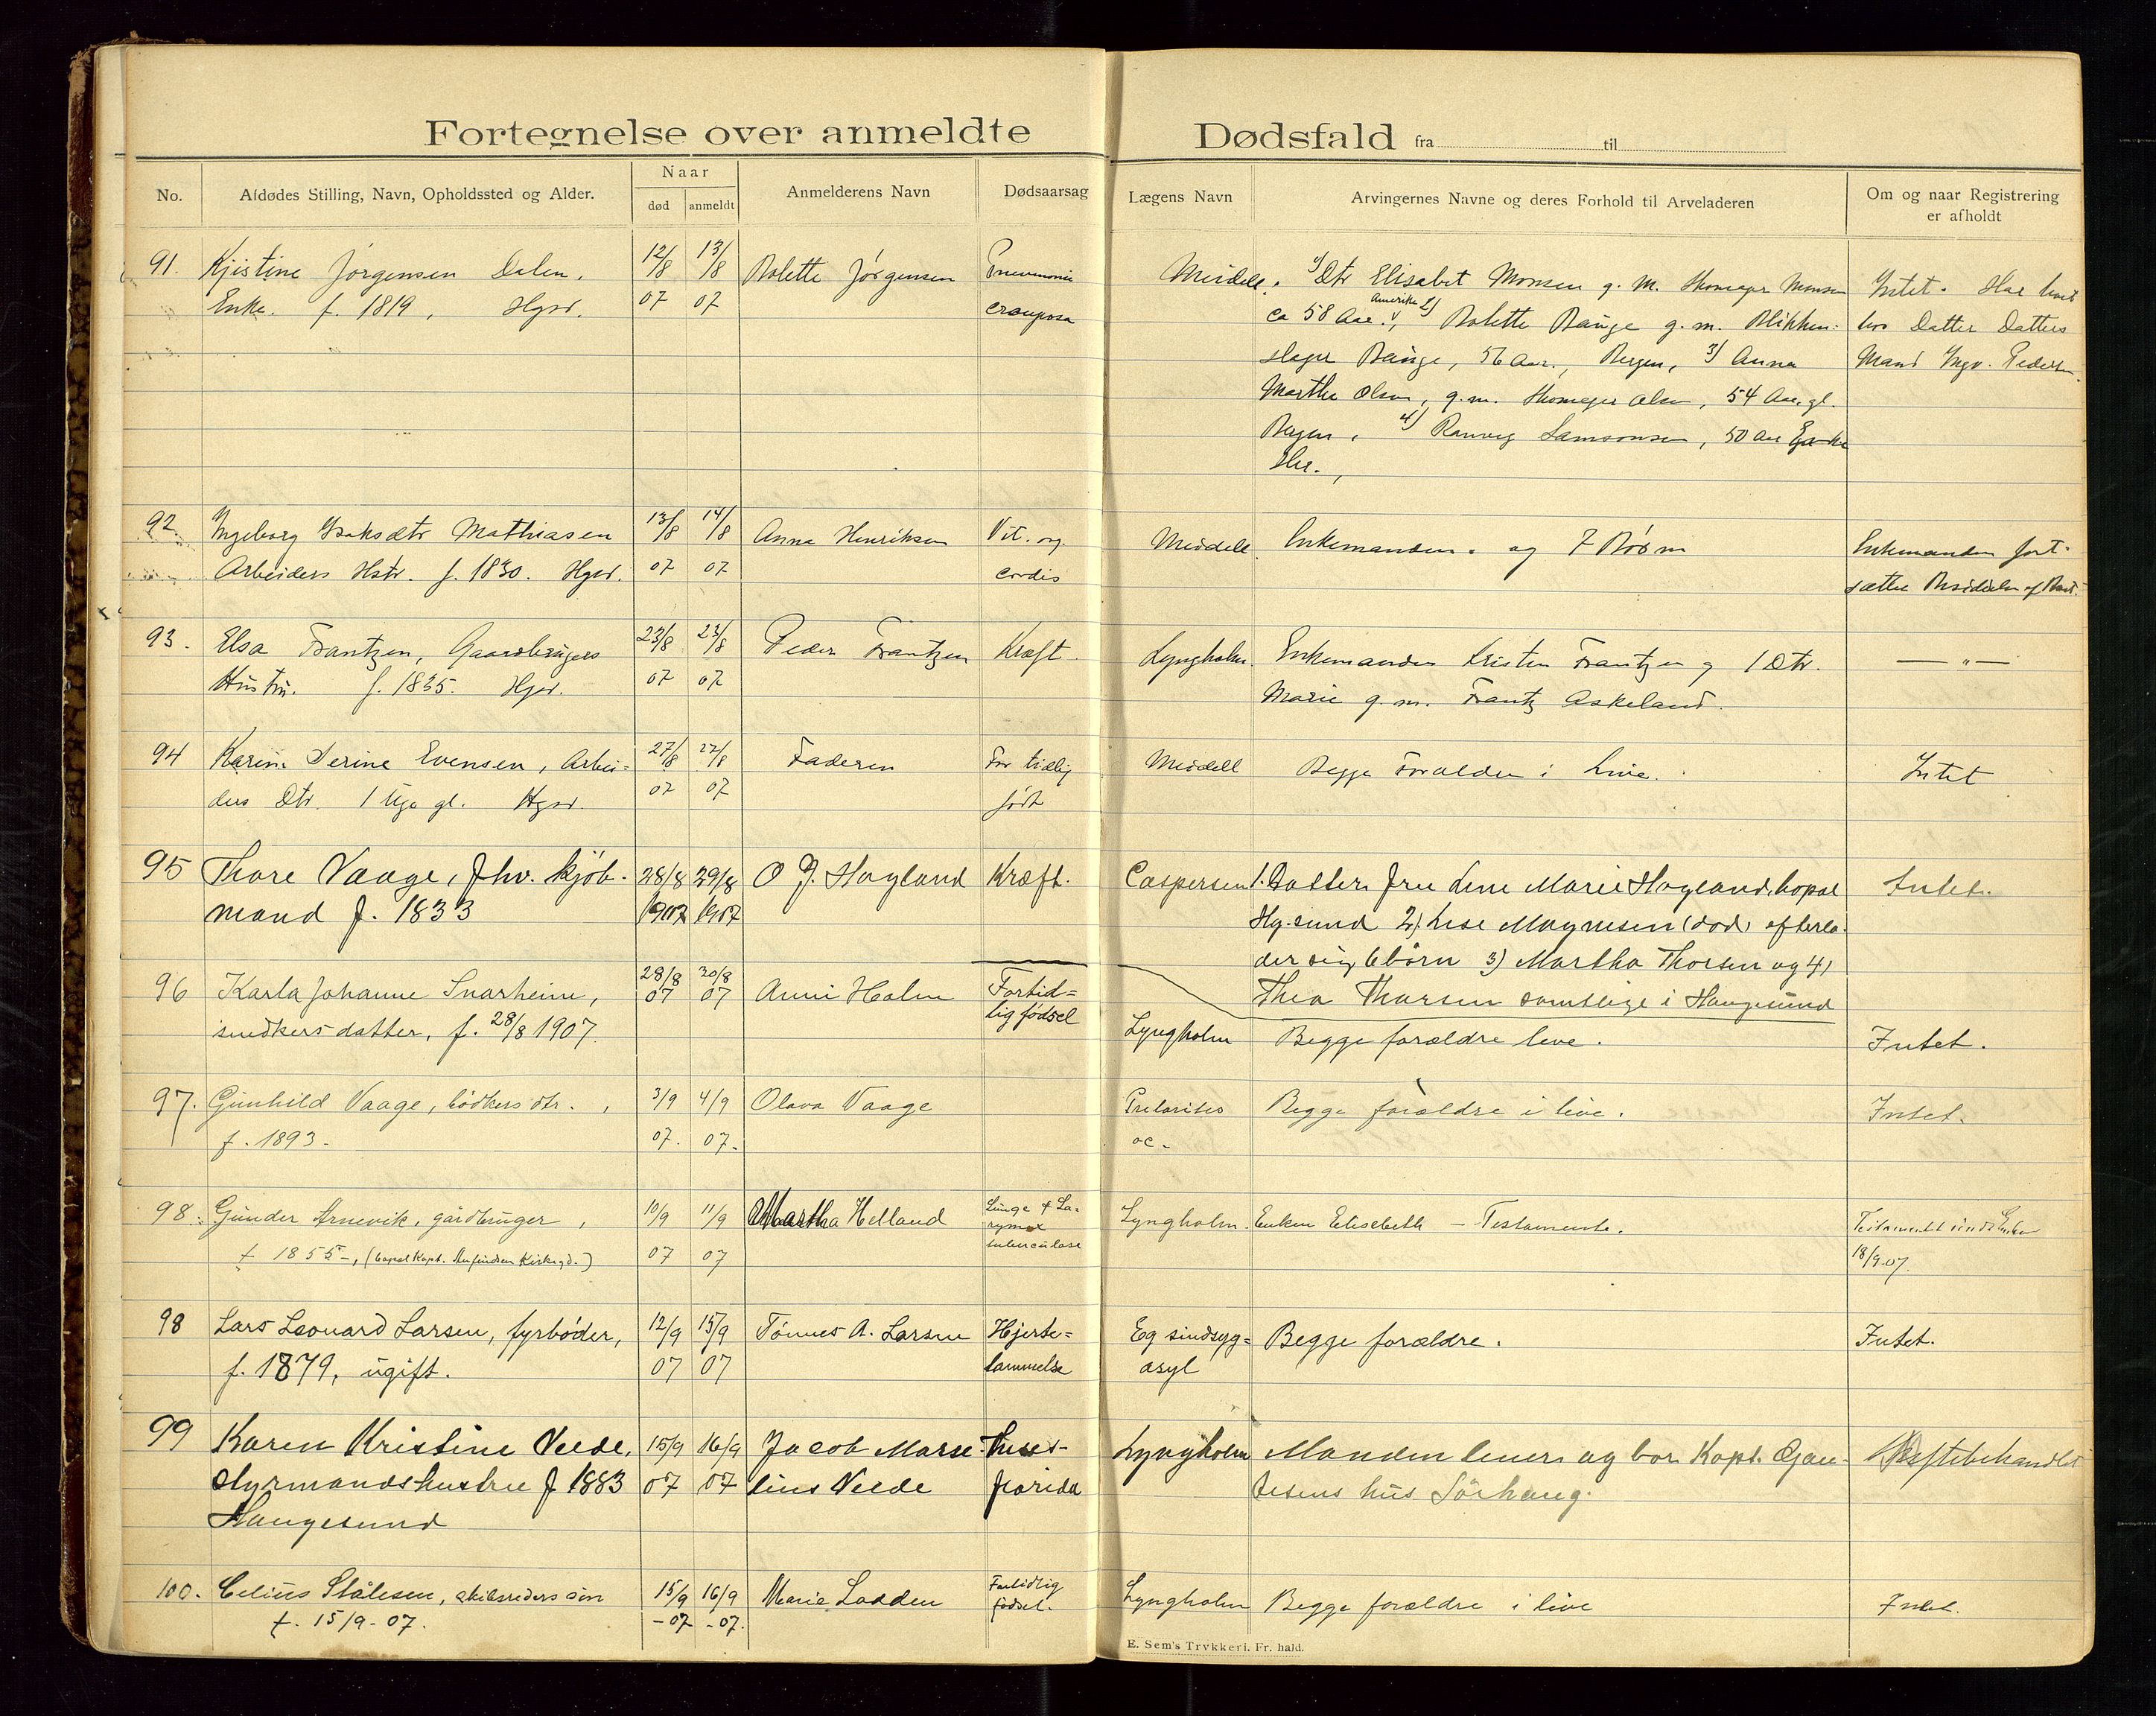 Fortegnelse over anmeldte Dødsfald fra til
No.
Afdødes Stilling, Navn, Opholdssted og Alder.
Naar
død anmeldt
Anmelderens Navn
Dødsaarsag
Lægens Navn
Arvingernes Navne og deres Forhold til Arveladeren
Om og naar Registrering
er afholdt
91. Kjistine Jørgensen Dalen. 12/8 13/8 Bolette Jørgensen Pneumonia
Enke. f. 1819, Hgsd. 07 07 crouposa
1) Dtr Elisabet Monsen g. m. Skomager Monsen
ca 58 Aar. Amerika 2) Bolette Bauge g. m. Blikken-
slager Bauge, 56 Aar., Bergen, 3) Anna
Martha Olsen, g. m. Skomager Olsen, 54 Aar gl.
Bergen, 4) Ranveg Samsonsen, 50 Aar Enke
Intet.
hos Datter Datters
Mand Ingv. Pedersen.
92. Ingeborg Isaksdtr Mathiasen 13/8 14/8 Anna Henriksen Vit. org.
Arbeiders Hstr. f. 1830. Hgsd. 07 07 cordis
Middell. Enkemanden og 7 Børn
Enkemanden fort-
sætter
93. Elsa Frantzen, Gaardbrugers 23/8 23/8 Peder Frantzen Kræft.
Hustru. f. 1835. Hgsd. 07 07
Lyngholm. Enkemanden Kristen Frantzen og 1 Dtr.
Marie g. m. Frantz Askeland.
— " —
94 Karin Serine Evensen, Arbei- 27/8 27/8 Faderen For tidlig
ders Dtr. 1 Uge gl. Hgsd. 07 07 født
Middell Begge Forældre i Live. Intet
95 Thore Vaage, fhv. kjøb- 28/8 29/8 O G. Hagland Kræft.
mand f. 1833 1907 1907
Caspersen 1. Datter Fru Line Marie Hagland, bopæl
Hg.sund 2) Lise Magnesen (død) efterla-
der sig 6 børn 3) Martha Thorsen og 4)
Thea Thorsen samtlige i Haugesund
Intet.
96 Karla Johanne Snarheim, 28/8 30/8 Anni Holm Fortid=
snedkers datter, f. 28/8 1907. 07 07 lig fødsel
Lyngholm Begge forældre leve. Intet.
97. Gunhild Vaage, bødkers dtr., 3/9 4/9 Olava Vaage
f. 1893. 07. 07.
oc. Begge forældre i live. Intet.
98. Gunder Arnevik, gårdbruger, 10/9 11/9 Martha Helland Lunge & La-
f 1855, (bopæl Kapt. Anfindsen Kirkegd.) 07 07 rynx
tuberculose
Lyngholm. Enken Elisabeth – Testamente.
18/9.07.
98 Lars Leonard Larsen, fyrbøder, 12/9 15/9 Tønnes A. Larsen Hjerte=
f. 1879, ugift. 07 07 lammelse
Eg sindsyg=
asyl
Begge forældre. Intet.
99 Karen Kristine Veede, 15/9 16/9 Jacob Marse-
styrmandshustru f 1883 07 07 lius Veede
Haugesund
Lyngholm Manden lever og bor Kapt. Gjau-
tesens hus Sørhaug.
Skiftebehandlet
100. Celius Stålesen, skibsreders søn 15/9 16/9 Marie Lodden Fortidlig
f. 15/9-07. -07 -07. fødsel.
Lyngholm Begge forældre i live Intet.
E. Sem's Trykkeri. Fr. hald.